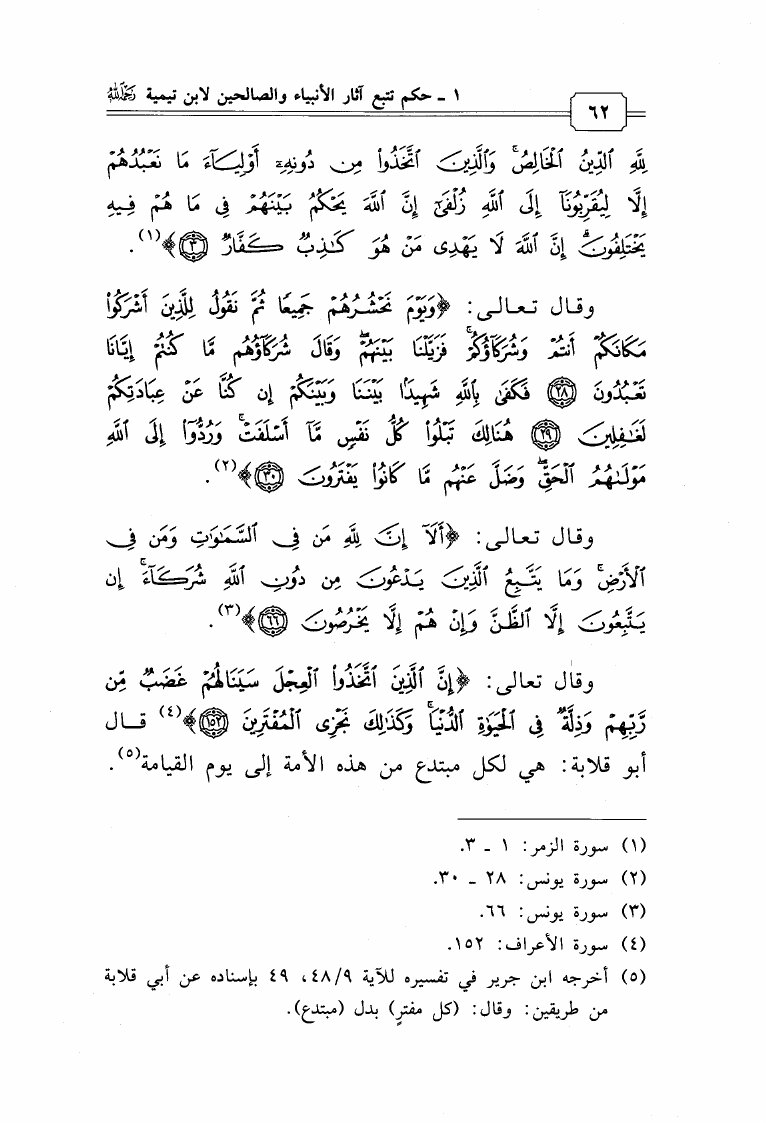 ١ - حكم تتبع آثار الأنبياء والصالحين لابن تيمية رحمه الله
٦٢
لِلَّهِ الدِّينُ الْخَالِصُ ۚ وَالَّذِينَ اتَّخَذُوا مِن دُونِهِ أَوْلِيَاءَ مَا نَعْبُدُهُمْ
إِلَّا لِيُقَرِّبُونَا إِلَى اللَّهِ زُلْفَىٰ إِنَّ اللَّهَ يَحْكُمُ بَيْنَهُمْ فِي مَا هُمْ فِيهِ
يَخْتَلِفُونَ ۗ إِنَّ اللَّهَ لَا يَهْدِي مَنْ هُوَ كَاذِبٌ كَفَّارٌ ۝٣﴾(١).
وقال تعالى: ﴿وَيَوْمَ نَحْشُرُهُمْ جَمِيعًا ثُمَّ نَقُولُ لِلَّذِينَ أَشْرَكُوا
مَكَانَكُمْ أَنتُمْ وَشُرَكَاؤُكُمْ ۚ فَزَيَّلْنَا بَيْنَهُمْ ۖ وَقَالَ شُرَكَاؤُهُم مَّا كُنتُمْ إِيَّانَا
تَعْبُدُونَ ۝٢٨ فَكَفَىٰ بِاللَّهِ شَهِيدًا بَيْنَنَا وَبَيْنَكُمْ إِن كُنَّا عَنْ عِبَادَتِكُمْ
لَغَافِلِينَ ۝٢٩ هُنَالِكَ تَبْلُوا كُلُّ نَفْسٍ مَّا أَسْلَفَتْ ۚ وَرُدُّوا إِلَى اللَّهِ
مَوْلَاهُمُ الْحَقِّ ۖ وَضَلَّ عَنْهُم مَّا كَانُوا يَفْتَرُونَ ۝٣٠﴾(٢).
وقال تعالى: ﴿أَلَا إِنَّ لِلَّهِ مَن فِي السَّمَاوَاتِ وَمَن فِي
الْأَرْضِ ۗ وَمَا يَتَّبِعُ الَّذِينَ يَدْعُونَ مِن دُونِ اللَّهِ شُرَكَاءَ ۚ إِن
يَتَّبِعُونَ إِلَّا الظَّنَّ وَإِنْ هُمْ إِلَّا يَخْرُصُونَ ۝٦٦﴾(٣).
وقال تعالى: ﴿إِنَّ الَّذِينَ اتَّخَذُوا الْعِجْلَ سَيَنَالُهُمْ غَضَبٌ مِّن
رَّبِّهِمْ وَذِلَّةٌ فِي الْحَيَاةِ الدُّنْيَا ۚ وَكَذَٰلِكَ نَجْزِي الْمُفْتَرِينَ ۝١٥٢﴾(٤) قال
أبو قلابة: هي لكل مبتدع من هذه الأمة إلى يوم القيامة(٥).
(١) سورة الزمر: ١ - ٣.
(٢) سورة يونس: ٢٨ - ٣٠.
(٣) سورة يونس: ٦٦.
(٤) سورة الأعراف: ١٥٢.
(٥) أخرجه ابن جرير في تفسيره للآية ٤٨/٩، ٤٩ بإسناده عن أبي قلابة
من طريقين: وقال: (كل مفترٍ) بدل (مبتدع).